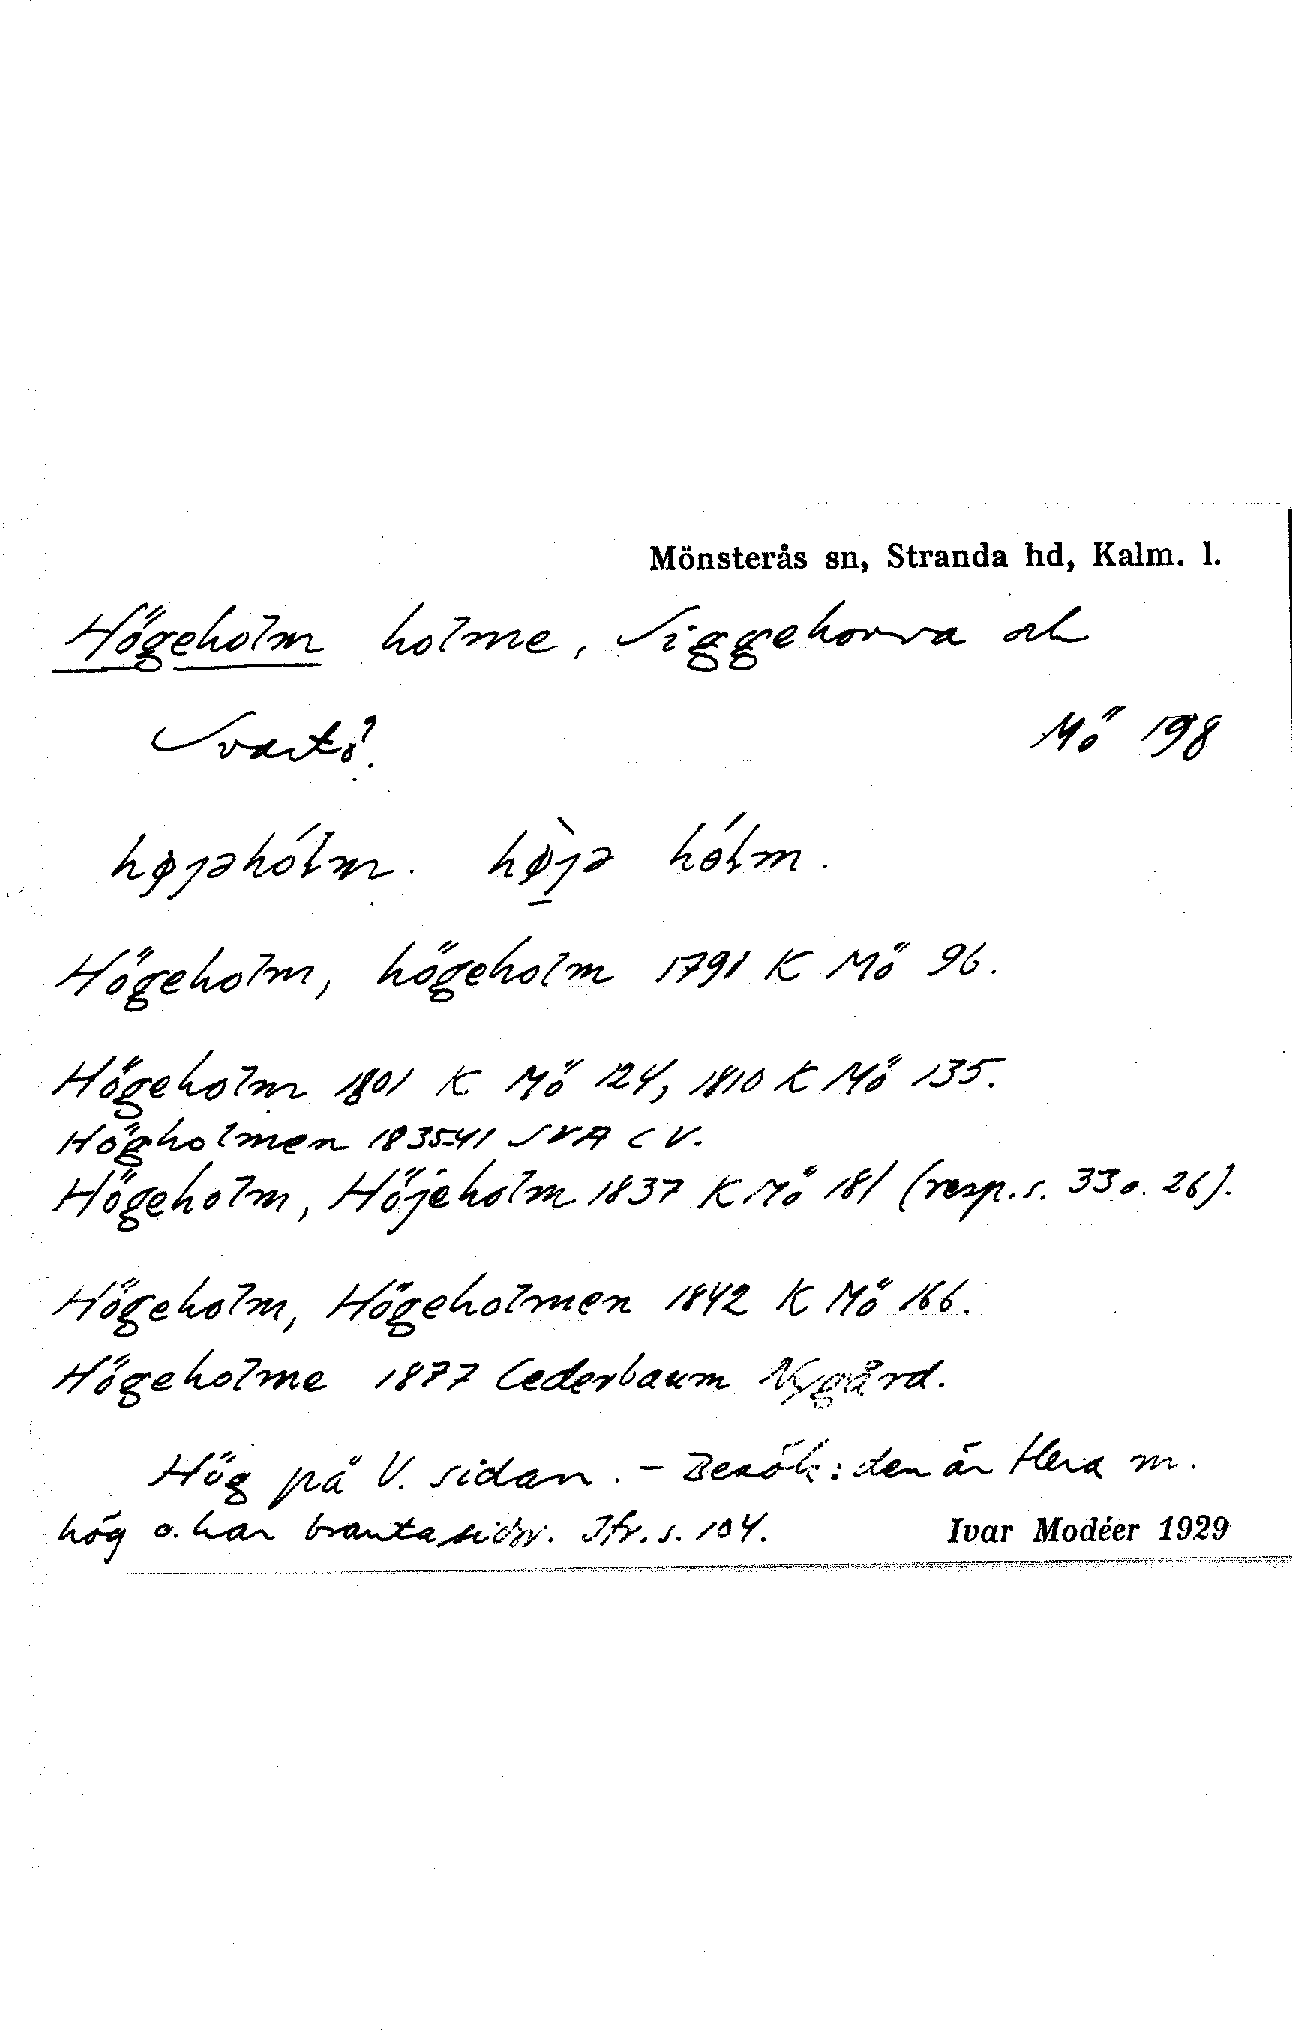 Mönsterås sn, Stranda hd, Kalm. l.
Högeholm holme, Siggehorva och
Svartö.
Mö 198
højəhólm. hø̀jə hólm.
Högeholm, högeholm 1791 K Mö 96.
Högeholm 1801 K Mö 124, 1810 K Mö 135.
Högholmen 1835-41 SVA C V.
Högeholm, Höjeholm 1837 K Mö 181 (resp. s. 33 o. 26).
Högeholm, Högeholmen 1842 K Mö 166.
Högeholme 1877 Cederbaum Nygård.
Hög på V. sidan. - Besök: den är flera m.
hög o. har branta sidor. Jfr. s. 104.
Ivar Modéer 1929